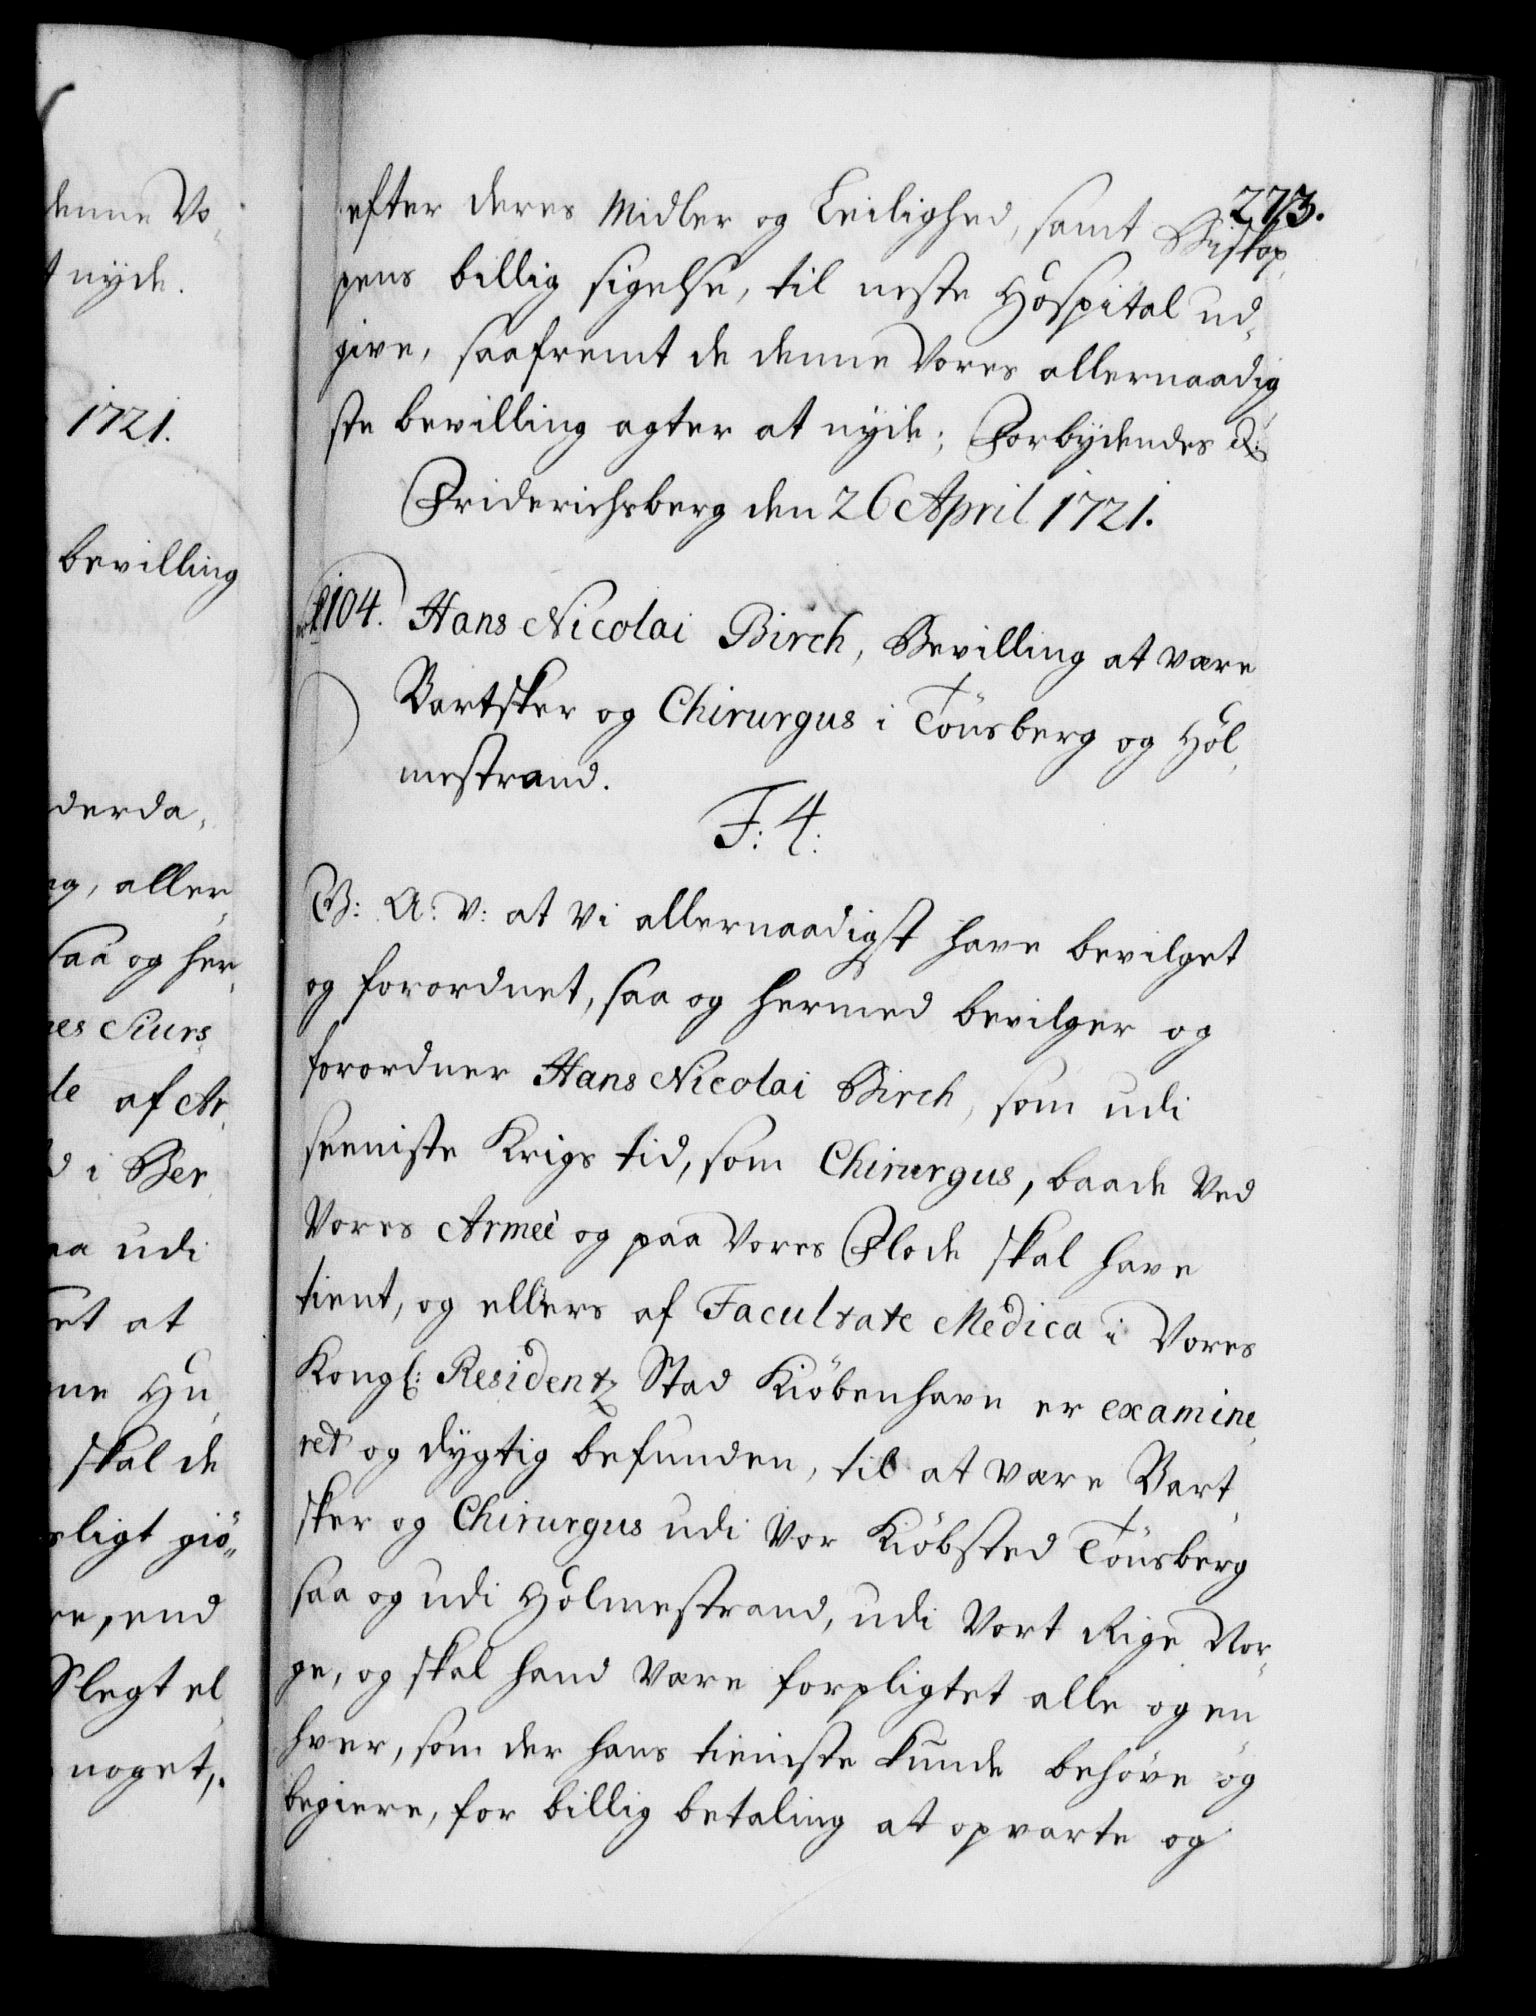 denne Vo„
t nyde.
1721.
bevilling
derda„
ng, aller„
saa og her„
nes Siurs„
de af Ar„
d i Ber„
aa udi
et at
ne Hu„
skal de
sligt giö„
re, end
Slegt el„
noget,
273.
efter deres Midler og Leilighed, samt Biskop„
pens billig sigelse, til neste Hospital ud„
give, saafremt de denne Vores allernaadig
ste bevilling agter at nyde; Forbydendes &:
Friderichsberg den 26 April 1721.
104. Hans Nicolai Birch, Bevilling at være
Bartsker og Chirurgus i Tönsberg og Hol„
mestrand.
F: 4:
G: A: V: at Vi allernaadigst have bevilget
og forordnet, saa og hermed bevilger og
forordner Hans Nicolai Birch, som udi
seeniste Krigs tid, som Chirurgus, baade Ved
Vores Armeè og paa Vores Flode skal have
tient, og ellers af Facultate Medica i Vores
Kongl: Residentz Stad Kiöbenhavn er examine„
ret og dygtig befunden, til at være Bart„
sker og Chirurgus udi Vor Kiöbsted Tönsberg
saa og udi Holmestrand, udi Vort Rige Nor„
ge, og skal hand Være forpligtet alle og en
hver, som der hans tieniste kunde behöve og
begiere, for billig betaling at opvarte og